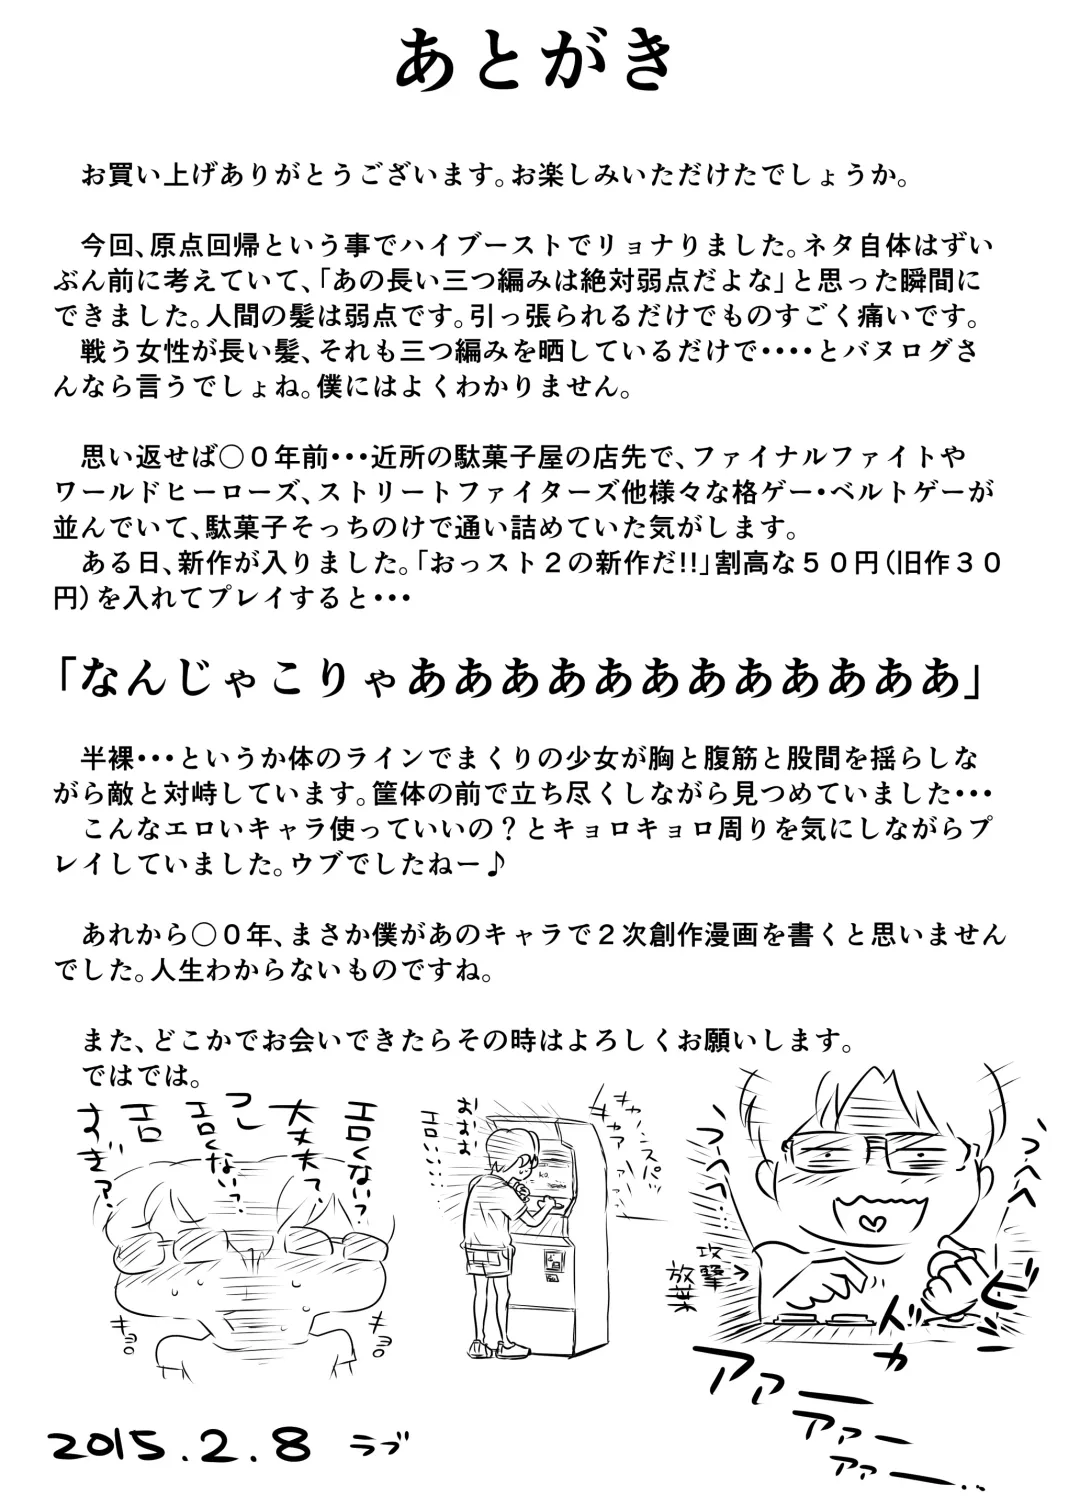 あとがき
お買い上げありがとうございます。お楽しみいただけたでしょうか。
今回、原点回帰という事でハイブーストでリョナりました。ネタ自体はずい
ぶん前に考えていて、「あの長い三つ編みは絶対弱点だよな」と思った瞬間に
できました。人間の髪は弱点です。引っ張られるだけでものすごく痛いです。
戦う女性が長い髪、それも三つ編みを晒しているだけで・・・・とバヌログさ
んなら言うでしょね。僕にはよくわかりません。
思い返せば〇０年前・・・近所の駄菓子屋の店先で、ファイナルファイトや
ワールドヒーローズ、ストリートファイターズ他様々な格ゲー・ベルトゲーが
並んでいて、駄菓子そっちのけで通い詰めていた気がします。
ある日、新作が入りました。「おっスト２の新作だ!!」割高な５０円（旧作３０
円）を入れてプレイすると・・・
「なんじゃこりゃああああああああああああ」
半裸・・・というか体のラインでまくりの少女が胸と腹筋と股間を揺らしな
がら敵と対峙しています。筐体の前で立ち尽くしながら見つめていました・・・
こんなエロいキャラ使っていいの？とキョロキョロ周りを気にしながらプ
レイしていました。ウブでしたねー♪
あれから〇０年、まさか僕があのキャラで２次創作漫画を書くと思いません
でした。人生わからないものですね。
また、どこかでお会いできたらその時はよろしくお願いします。
ではでは。
エロくない？
大丈夫？
エロくない？
エロ
すぎ？
キョロ
キョロ
おおお
エロい・・・
キャー
スパッ
キャァ
つへへ
つへへ
攻撃
放棄
ドカ
ビシ
アァー
アァー
アァー..
2015.2.8 ラブ